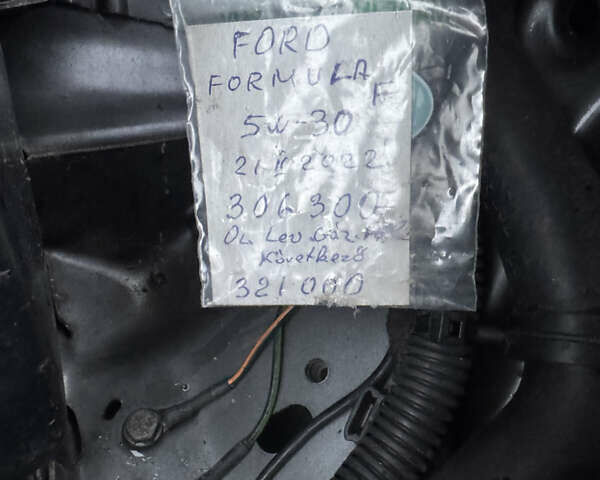 FORD
FORMULA F
5W-30
21 II 2022
306 300
OL Lev Gáz
Következő
321000